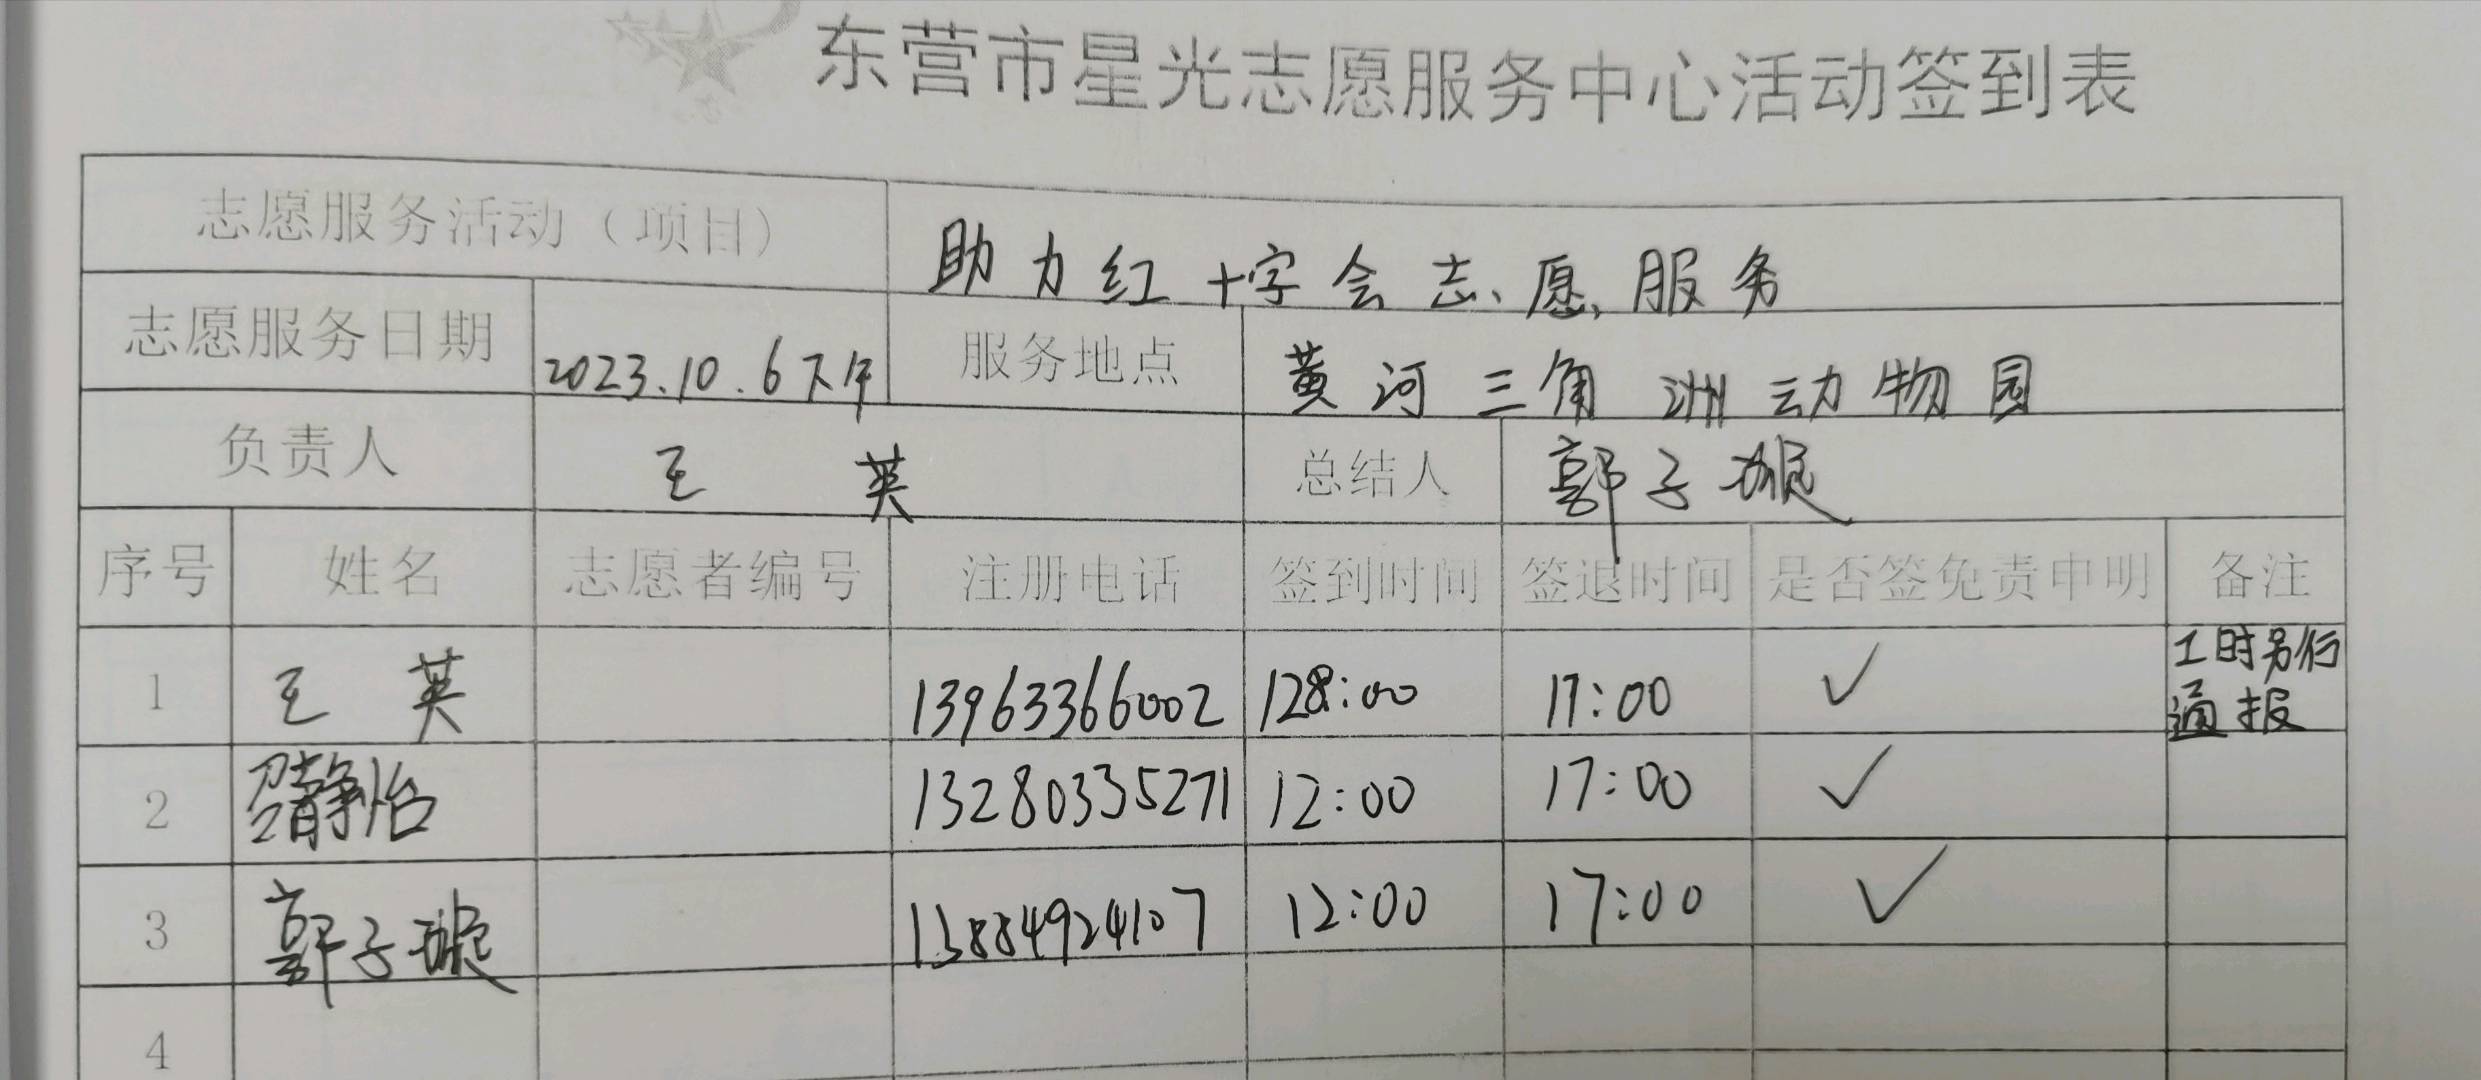 东营市星光志愿服务中心活动签到表
志愿服务活动（项目） 助力红十字会志愿服务
志愿服务日期 2023.10.6下午 服务地点 黄河三角洲动物园
负责人 王英 总结人 郭子璇
序号 姓名 志愿者编号 注册电话 签到时间 签退时间 是否签免责申明 备注
1 王英 13963366002 128:00 17:00 ✓ 工时另行通报
2 邵静怡 13280335271 12:00 17:00 ✓
3 郭子璇 13884924107 12:00 17:00 ✓
4